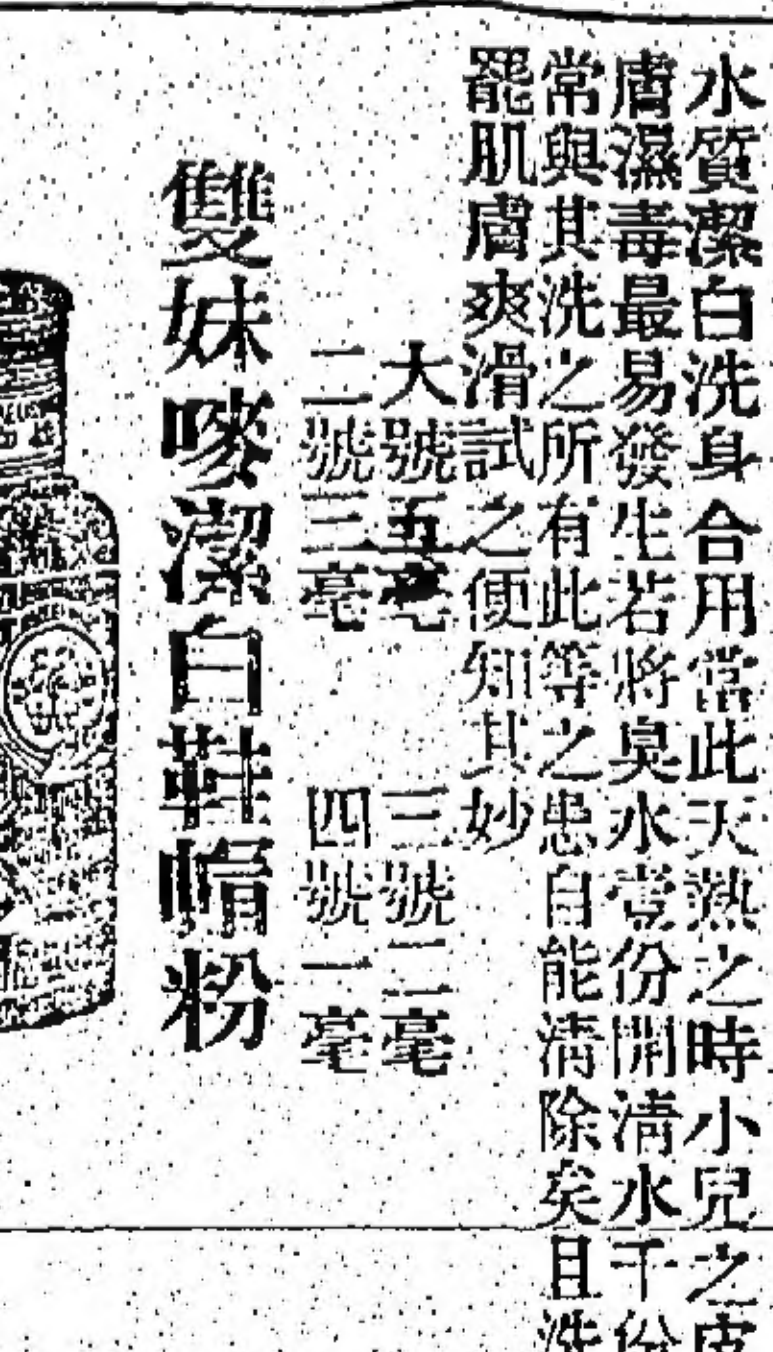 水質潔白洗身合用當此天熱之時小兒之皮
膚濕毒最易發生若將臭水壹份開清水千份
常與其洗之所有此等之患自能清除矣且洗
罷肌膚爽滑試之便知其妙
大號五毫 三號二毫
二號三毫 四號一毫
雙妹嘜潔白鞋帽粉